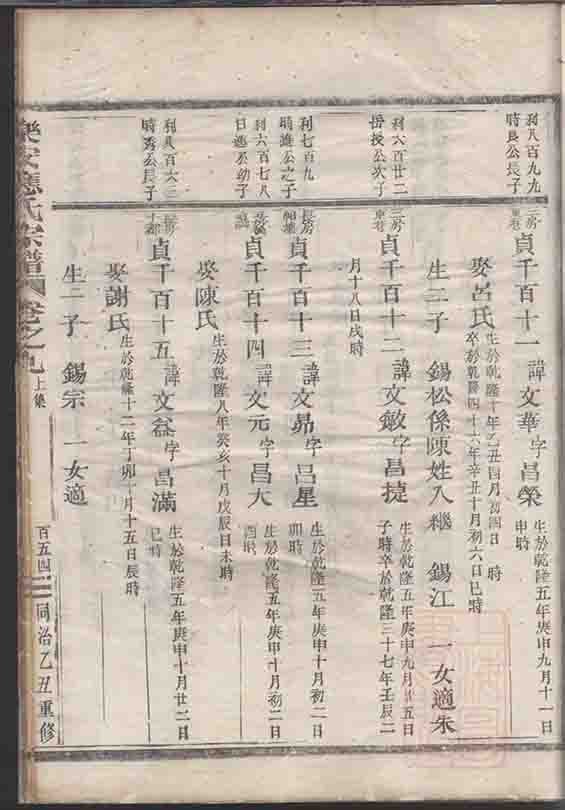 利八百九九
時良公長子
三房
東巷
貞千百十一 諱文華字昌榮 生於乾隆五年庚申九月十一日
申時
娶呂氏 生於乾隆十年乙丑四月初四日 時
卒於乾隆四十六年辛丑十月初六日巳時
生二子 錫松係陳姓入繼 錫江 一女適朱
利六百廿二
時授公次子
三房
東巷
貞千百十二 諱文敏字昌捷 生於乾隆五年庚申九月廿五日
子時卒於乾隆三十七年壬辰二
月十八日戌時
利七百九
時進公之子
長房
貞千百十三 諱文昴字呂星 生於乾隆五年庚申十月初二日
卯時
利六百七八
日進公幼子
貞千百十四 諱文元字昌大 生於乾隆五年庚申十月初二日
酉時
娶陳氏 生於乾隆八年癸亥十月戊辰日未時
利八百六三
時秀公長子
長房
貞千百十五 諱文益字昌滿 生於乾隆五年庚申十月廿二日
巳時
娶謝氏 生於乾隆十二年丁卯十月十五日辰時
生二子 錫宗 一女適
樂安應氏宗譜 卷之九 上集 百五四 同治乙丑重修